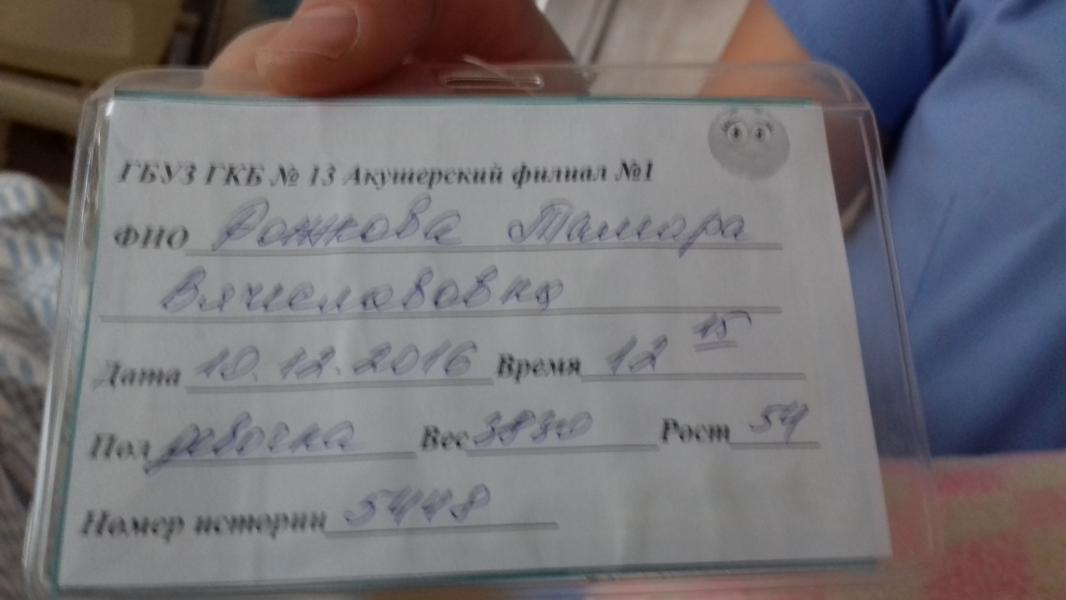 ГБУЗ ГКБ № 13 Акушерский филиал №1
ФИО Рожкова Тамара
Вячеславовна
Дата 10.12.2016 Время 12 15
Пол девочка Вес 3830 Рост 54
Номер истории 5448